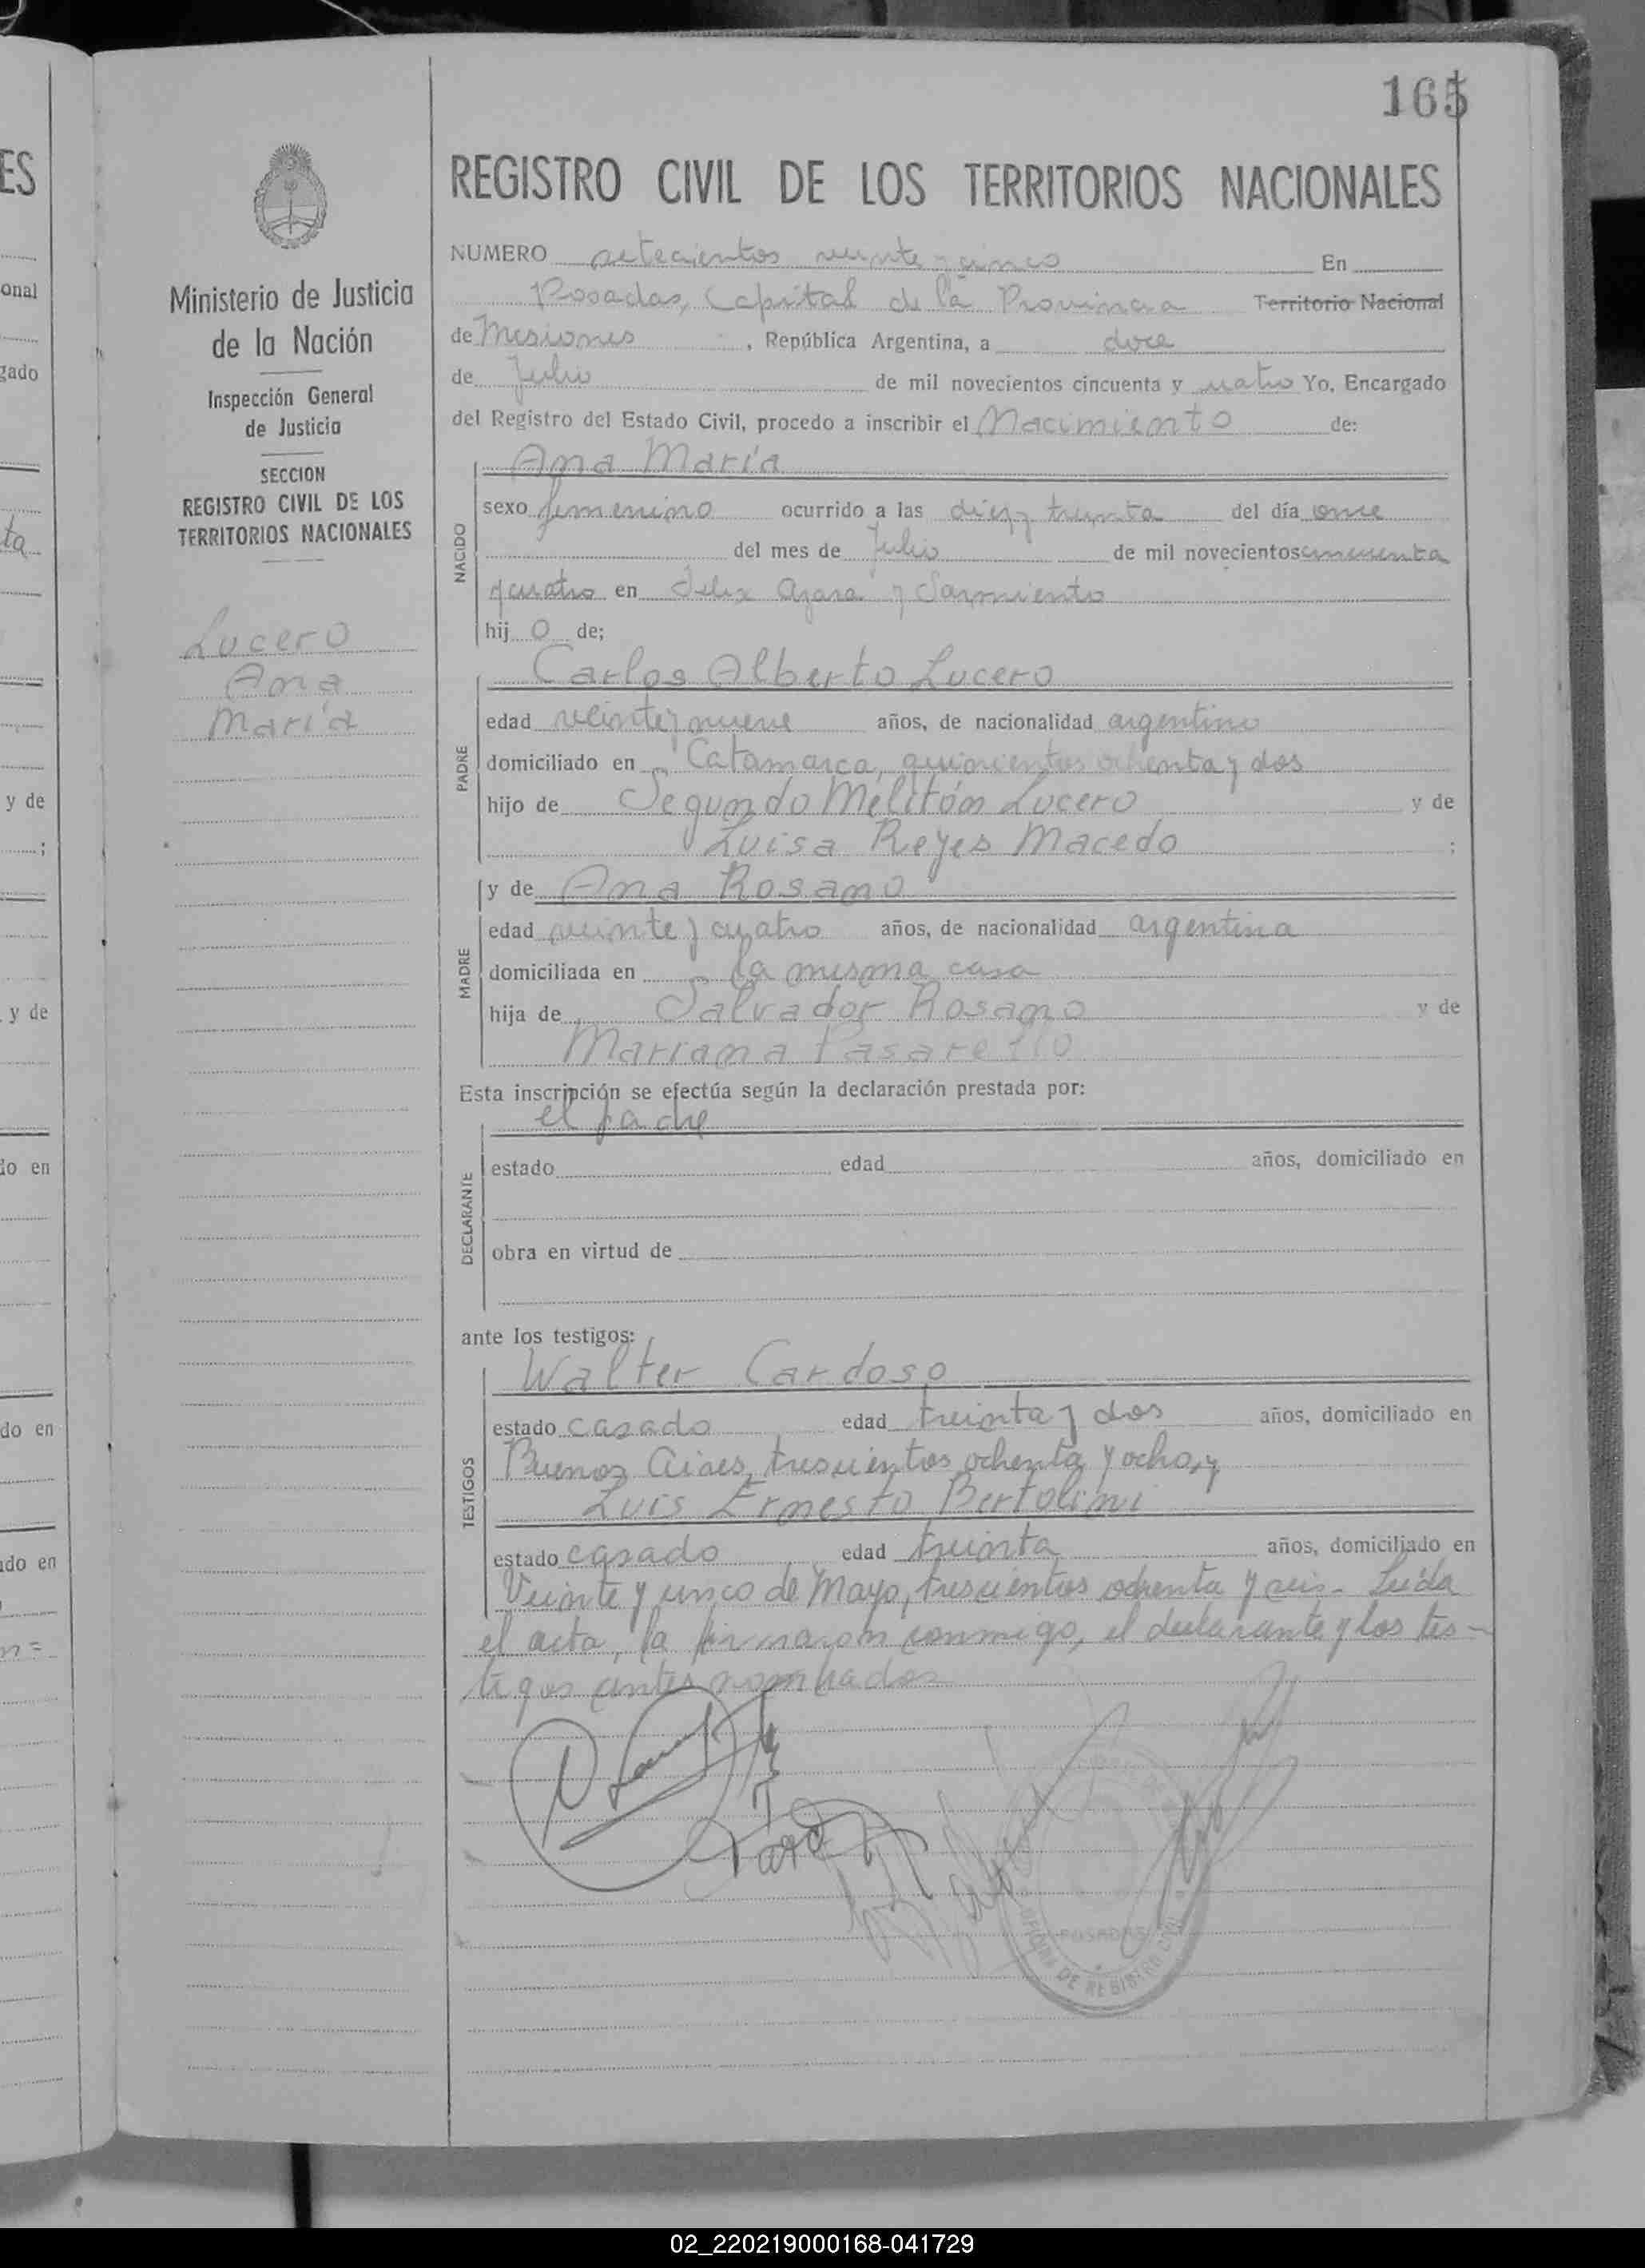 165
ES
onal
gado
ta
y de
y de
do en
do en
do en
Ministerio de Justicia
de la Nación
Inspección General
de Justicia
SECCION
REGISTRO CIVIL DE LOS
TERRITORIOS NACIONALES
Lucero
Ana
María
REGISTRO CIVIL DE LOS TERRITORIOS NACIONALES
NUMERO setecientos veinte y cinco En
Posadas, Capital de la Provincia Territorio Nacional
de Misiones, República Argentina, a doce
de Julio de mil novecientos cincuenta y cuatro Yo, Encargado
del Registro del Estado Civil, procedo a inscribir el Nacimiento de:
Ana María
NACIDO
sexo femenino ocurrido a las diez y treinta del día once
del mes de Julio de mil novecientos cincuenta
y cuatro en Felix Azara y Sarmiento
hij o de;
Carlos Alberto Lucero
PADRE
edad veinte y nueve años, de nacionalidad argentino
domiciliado en Catamarca, quinientos ochenta y dos
hijo de Segundo Melitón Lucero y de
Luisa Reyes Macedo ;
y de Ana Rosano
MADRE
edad veinte y cuatro años, de nacionalidad argentina
domiciliada en la misma casa
hija de Salvador Rosano y de
Mariana Pasarello
Esta inscripción se efectúa según la declaración prestada por:
el padre
DECLARANTE
estado edad años, domiciliado en
obra en virtud de
ante los testigos:
Walter Cardoso
TESTIGOS
estado casado edad treinta y dos años, domiciliado en
Buenos Aires, trescientos ochenta y ocho, y
Luis Ernesto Bertolini
estado casado edad treinta años, domiciliado en
Veinte y cinco de Mayo, trescientos ochenta y seis.- Leída
el acta, la firmaron conmigo, el declarante y los tes-
tigos antes nombrados
POSADAS
OFICINA DE REGISTRO CIVIL
02_220219000168-041729